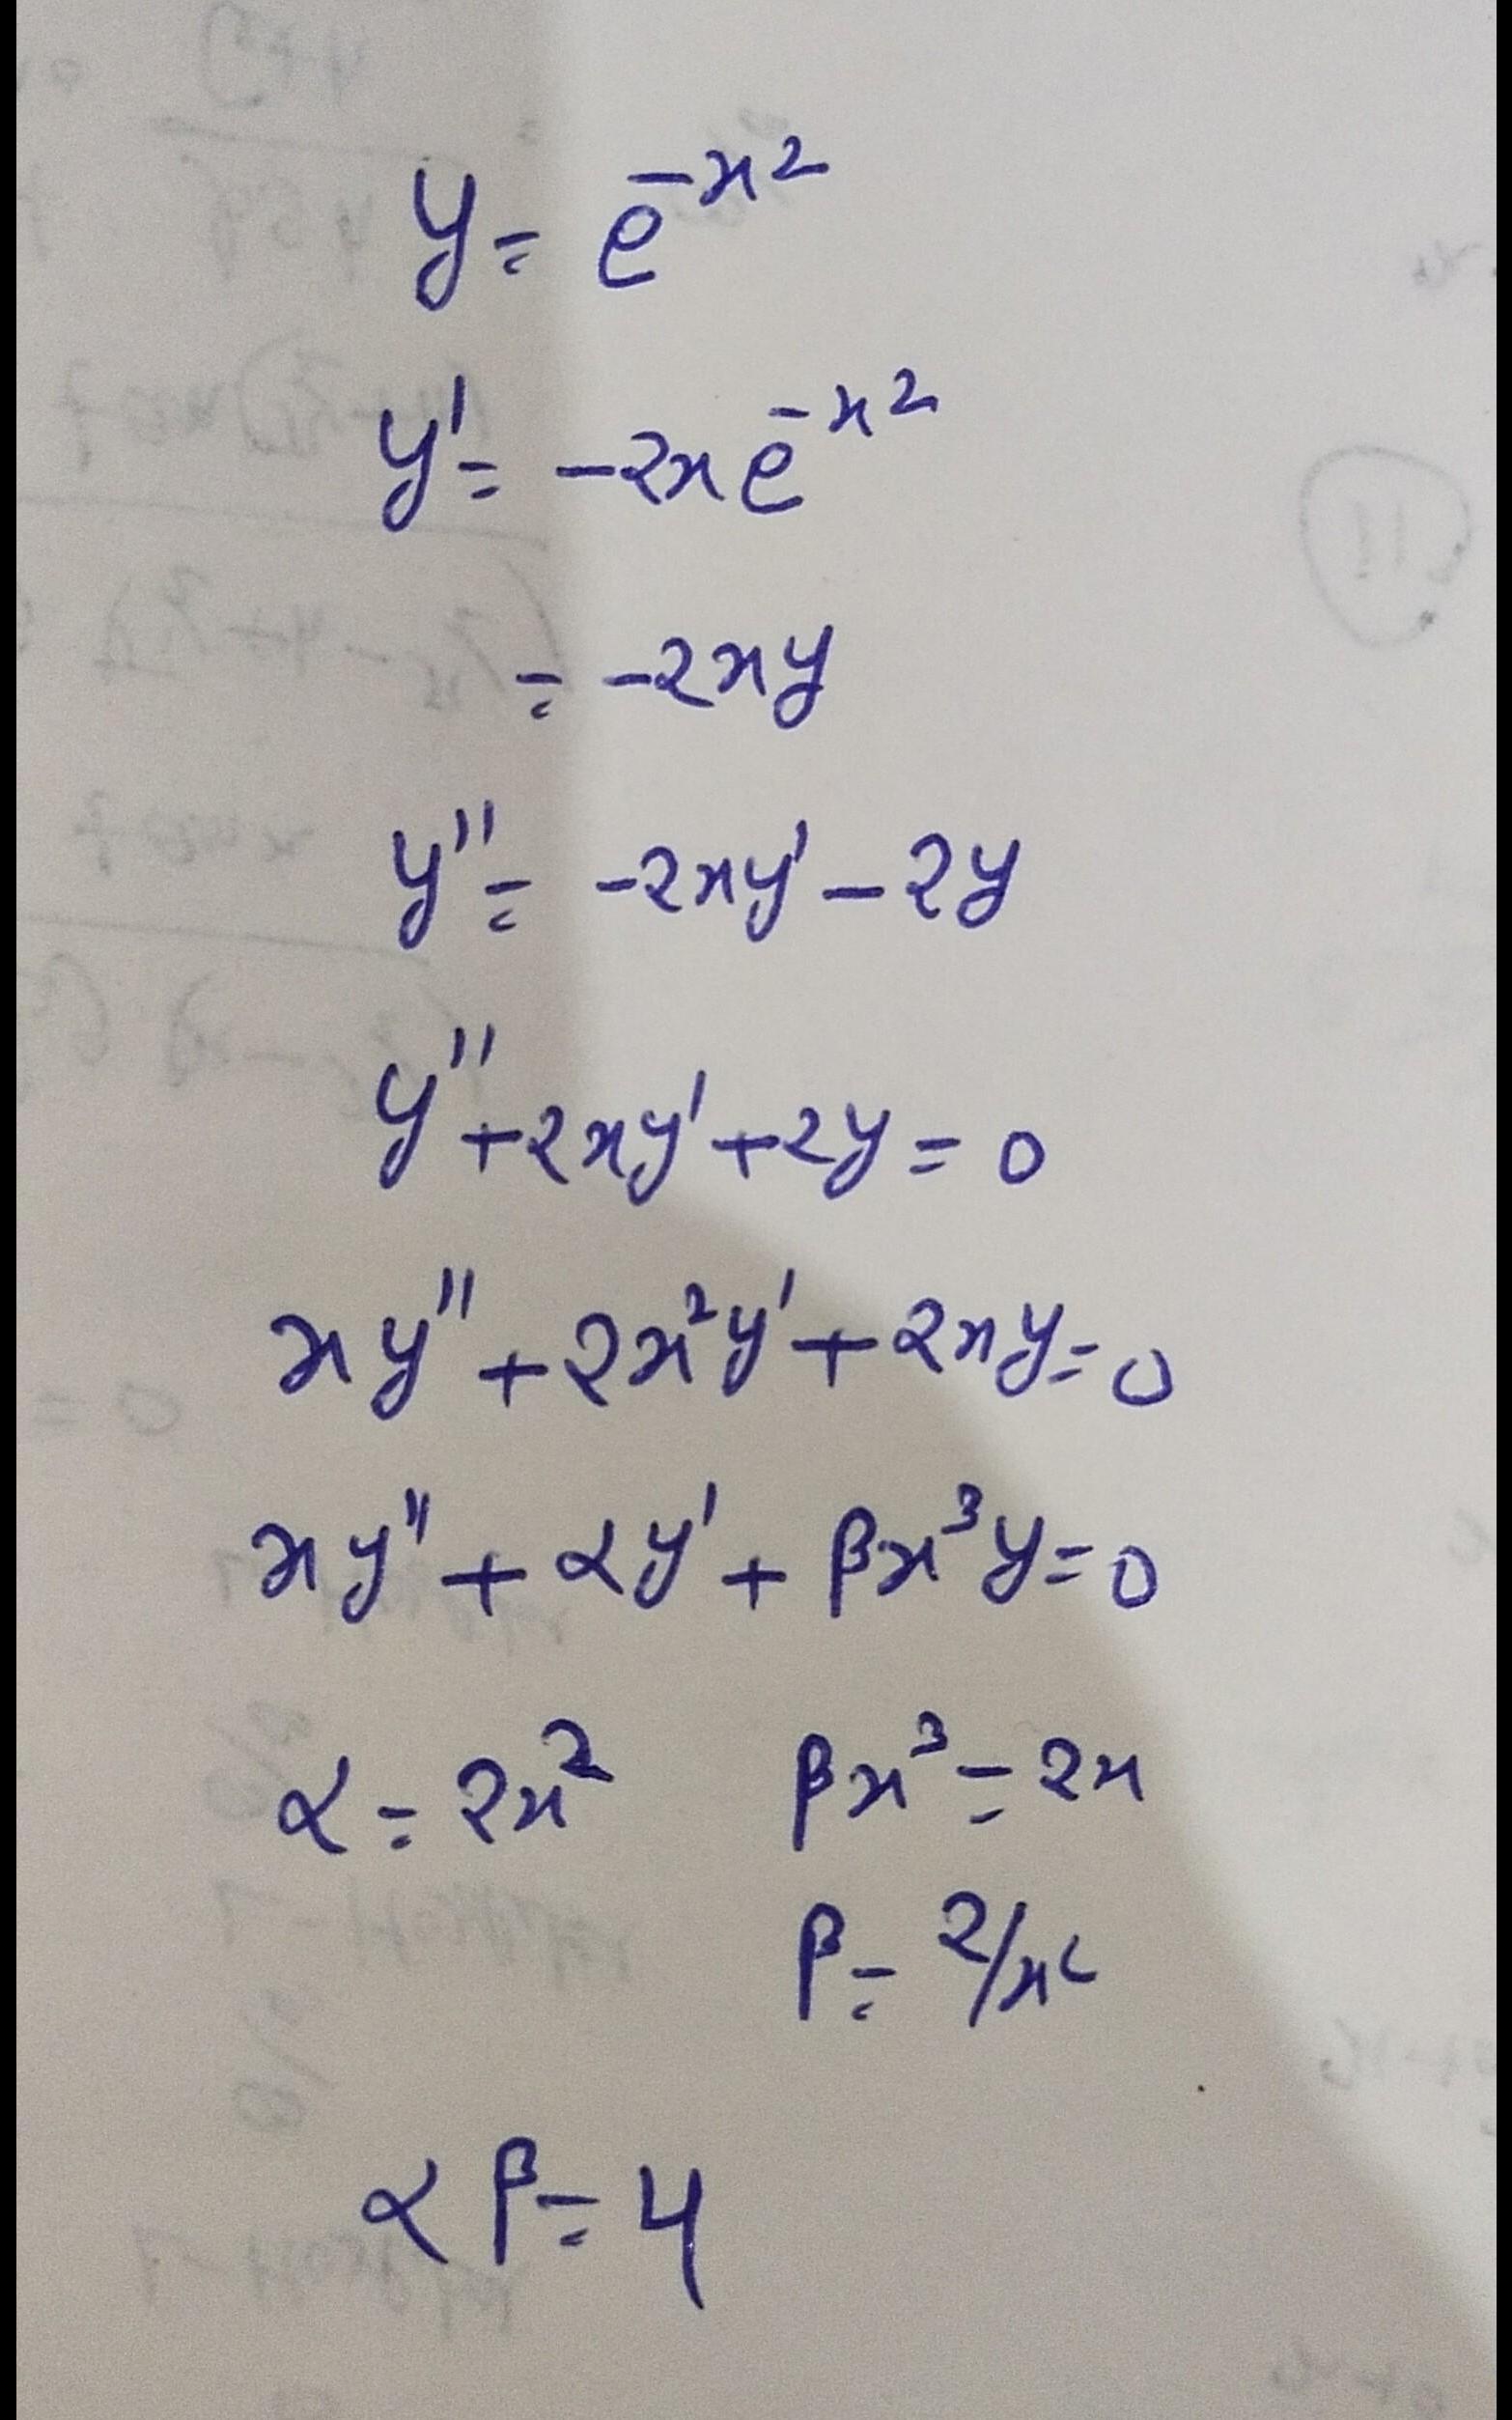 y = e^{-x^2}
y' = -2xe^{-x^2}
= -2xy
y'' = -2xy' - 2y
y'' + 2xy' + 2y = 0
xy'' + 2x^2y' + 2xy = 0
xy'' + αy' + βx^3y = 0
α = 2x^2 βx^3 = 2x
β = 2/x^2
αβ = 4